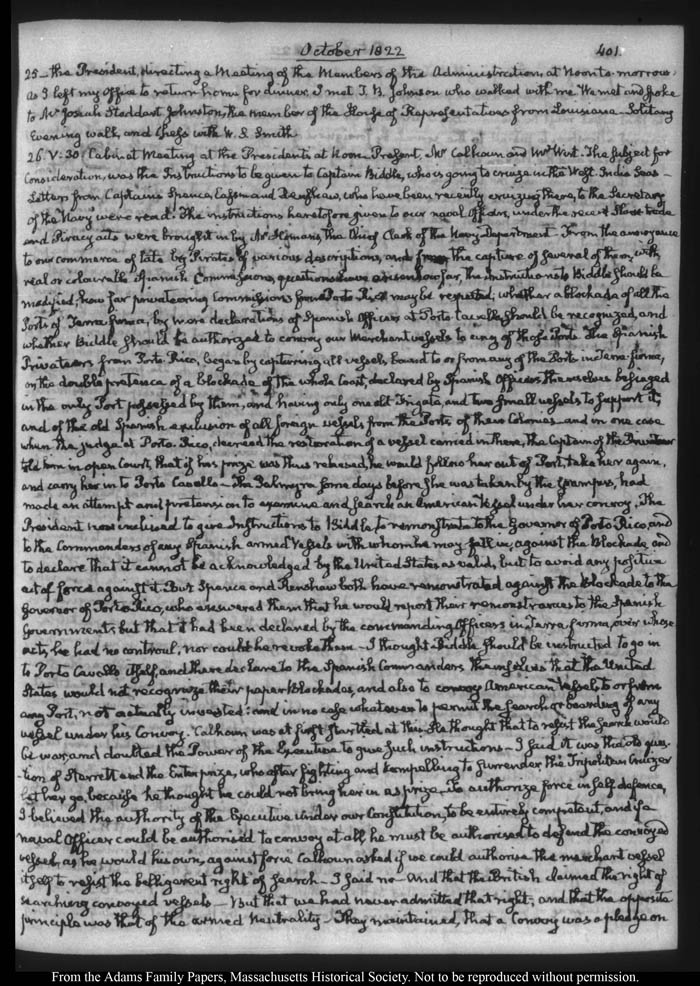 October 1822 401.
25 — the President, directing a Meeting of the Members of the Administration, at Noon to-morrow.
As I left my Office to return home for dinner I met J. B. Johnson who walked with me We met and spoke
to Mr Josiah Stoddart Johnston, the member of the House of Representatives from Louisiana — Solitary
Evening walk, and Chess with W. S. Smith.
26. V:30. Cabinet Meeting at the Presidents at Noon. Present, Mr Calhoun and Mr Wirt. The subject for
Consideration, was the Instructions to be given to Captain Biddle, who is going to cruize in the West India Seas —
Letters from Captains Spence, Cassin and Renshaw, who have been recently cruizing there, to the Secretary
of the Navy were read. The instructions heretofore given to our naval Officers, under the recent Slave trade
and Piracy acts were brought in by Mr Homans, the Chief Clerk of the Navy Department — From the annoyance
to our commerce of late by Pirates of various descriptions, and from the capture of several of them, with
real or colourable Spanish Commissions, questions have arisen how far, the instructions to Biddle should be
modified; how far privateering Commissions from Porto Rico may be respected; whether a blockade of all the
Ports of Terra-firma, by mere declarations of Spanish Officers at Porto Cavello should be recognized, and
whether Biddle should be authorized to convoy our Merchant vessels to any of those Ports. The Spanish
Privateers from Porto Rico, began by capturing all vessels bound to or from any of the Ports in Terra-firma,
on the double pretence of a blockade of the whole Coast, declared by Spanish Officers themselves besieged
in the only Port possessed by them, and having only one old Frigate, and two small vessels to support it,
and of the old Spanish exclusion of all foreign vessels from the Ports of these Colonies — and in one case
when the judge at Porto-Rico, decreed the restoration of a vessel carried in there, the Captain of the Privateer
told him in open Court, that if his prize was thus released, he would follow her out of Port, take her again,
and carry her in to Porto Cavello — The Palmyra some days before she was taken by the Grampus, had
made an attempt and pretension to examine and search an American Vessel under her convoy. The
President now inclined to give Instructions to Biddle, to remonstrate to the Governor of Porto Rico, and
to the Commanders of any Spanish armed Vessels with whom he may fall in, against the Blockade, and
to declare that it cannot be acknowledged by the United States as valid, but to avoid any positive
act of force against it. But Spence and Renshaw both have remonstrated against the blockade to the
Governor of Porto Rico, who answered them that he would report their remonstrances to the Spanish
Government; but that it had been declared by the commanding Officers in Terra-firma, over whose
acts, he had no controul, nor could he revoke them — I thought Biddle should be instructed to go in
to Porto Cavello itself, and there declare to the Spanish Commanders themselves that the United
States would not recognize their paper blockades, and also to convoy American Vessels, to or from
any Port, not actually invested: and in no case whatever to permit the search or boarding of any
vessel under his Convoy. Calhoun was at first startled at this. He thought that to resist the search would
be war, and doubted the Power of the Executive to give such instructions — I said it was the old ques-
tion of Sterrett and the Enterprize, who after fighting and compelling to surrender the Tripolitan Cruizer
let her go, because he thought he could not bring her in as prize — To authorize force in self defence,
I believed the authority of the Executive under our Constitution, to be entirely competent, and if a
naval Officer could be authorised to convoy at all, he must be authorised to defend the convoyed
vessel, as he would his own, against force. Calhoun asked if we could authorise the merchant vessel
itself to resist the belligerent right of search — I said no — And that the British claimed the right of
searching convoyed vessels — But that we had never admitted that right; and that the opposite
principle was that of the armed Neutrality — They maintained, that a Convoy was a pledge on
From the Adams Family Papers, Massachusetts Historical Society. Not to be reproduced without permission.